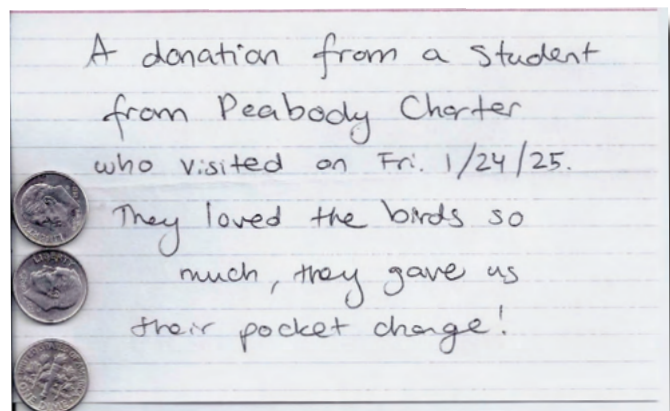 A donation from a student
from Peabody Charter
who visited on Fri. 1/24/25.
They loved the birds so
much, they gave us
their pocket change!
LIBERTY